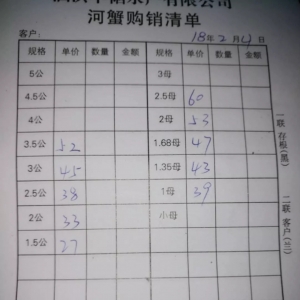 有限公司
河蟹购销清单
客户: 18年2月4日
规格 单价 数量 金额 规格 单价 数量 金额
5公 3母
4.5公 2.5母 60
4公 2母 53
3.5公 52 1.68母 47
3公 45 1.35母 43
2.5公 38 1母 39
2公 33 小母
1.5公 27
一联 存根(黑)
二联 客户(三)